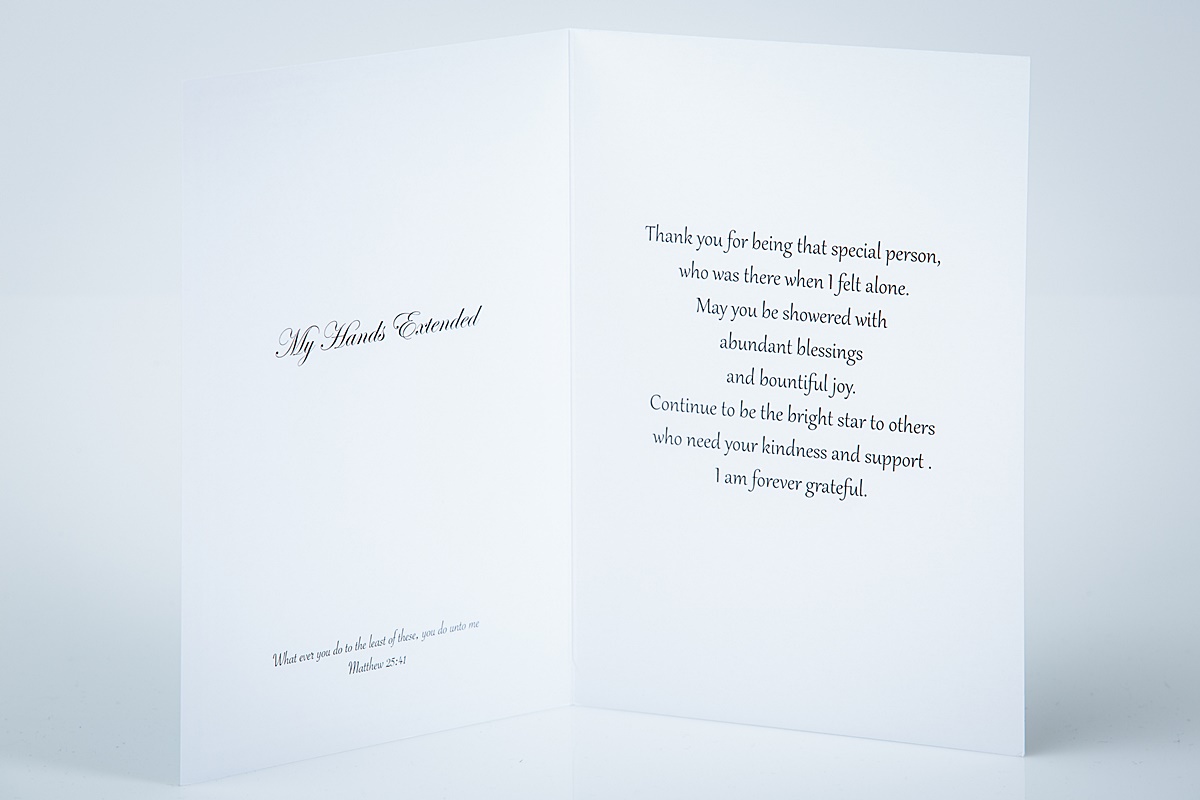 My Hands Extended
What ever you do to the least of these, you do unto me
Matthew 25:41
Thank you for being that special person,
who was there when I felt alone.
May you be showered with
abundant blessings
and bountiful joy.
Continue to be the bright star to others
who need your kindness and support .
I am forever grateful.